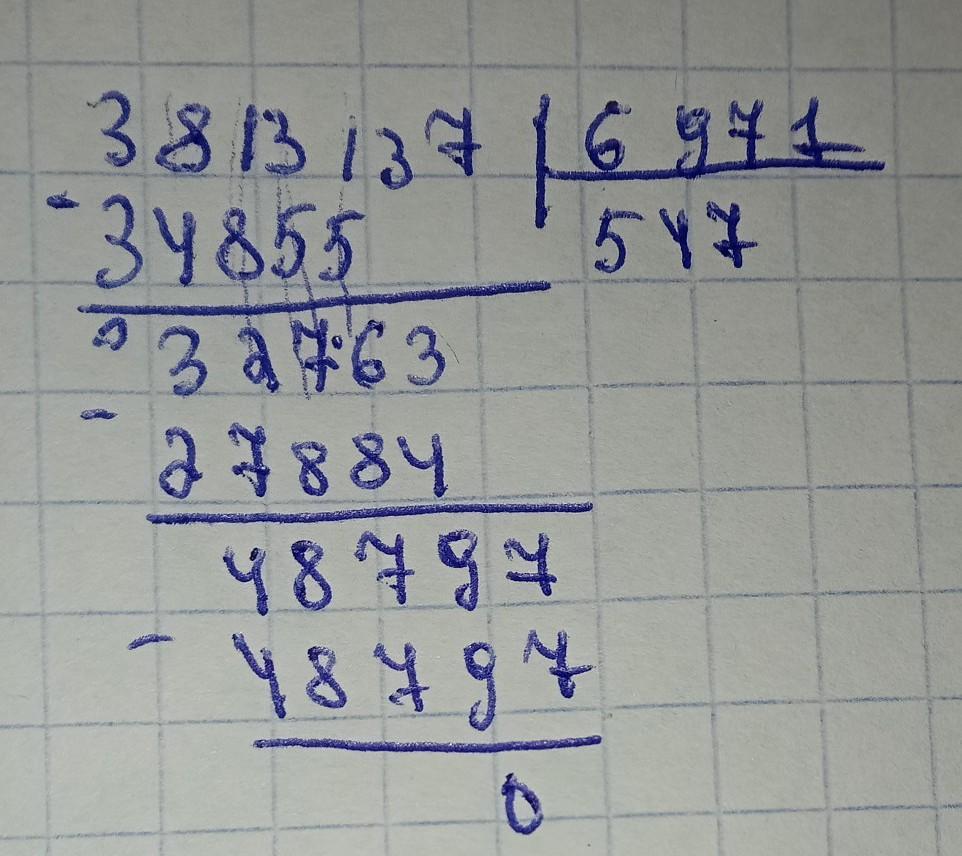 3813137 6971
- 34855 547
0 32763
- 27884
48797
- 48797
0